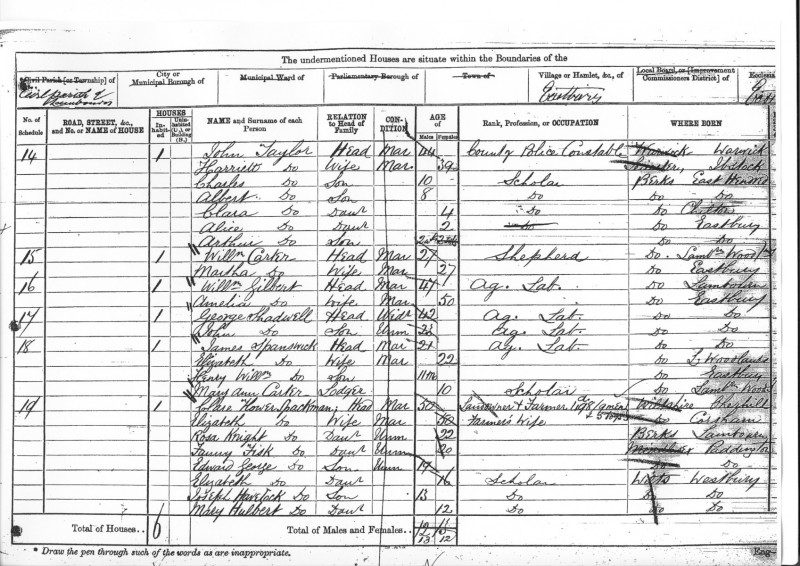 The undermentioned Houses are situate within the Boundaries of the
Civil Parish [or Township] of City or Municipal Borough of Municipal Ward of Parliamentary Borough of Town of Village or Hamlet, &c., of Local Board, or [Improvement Commissioners District] of Ecclesia
Civil Parish of Eastbury
No. of Schedule ROAD, STREET, &c., and No. or NAME of HOUSE HOUSES Inhabited Uninhabited (U.), or Building (B.) NAME and Surname of each Person RELATION to Head of Family CONDITION AGE of Males Females Rank, Profession, or OCCUPATION WHERE BORN
14 1 John Taylor Head Mar 44 County Police Constable Warwick Warwick
Harriett Do Wife Mar 39
Charles Do Son 10 Scholar Berks East Hendred
Albert Do Son 8 Do Do Do
Clara Do Daur 4 Do Do
Alice Do Daur 2 Do Do Eastbury
Arthur Do Son Do Do
15 1 Willm Carter Head Mar 27 Shepherd Do
Martha Do Wife Mar 27 Do Eastbury
16 1 Willm Gilbert Head Mar 47 Ag. Lab. Do Lambourn
Amelia Do Wife Mar 50 Do Eastbury
17 1 George Shadwell Head Widr 42 Ag. Lab. Do Do
John Do Son Unm Ag. Lab. Do Do
18 1 James Spanswick Head Mar 21 Ag. Lab. Do Do
Elizabeth Do Wife Mar 22 Do Woodlands
Henry Willm Do Son 11m Do Eastbury
Mary Ann Carter Lodger 10 Scholar Do
19 1 Spackman; Head Mar 50 Landowner & Farmer Wiltshire
Elizabeth Do Wife Mar Farmer's Wife Do Corsham
Rosa Wright Do Daur Unm 22 Berks Lambourn
Fanny Fisk Do Daur Unm 20 Middlesex Paddington
Edward George Do Son Unm 17 Do Do
Elizabeth Do Daur 16 Scholar Wilts Westbury
Joseph Havelock Do Son 13 Do Do Do
Mary Hulbert Do Daur 12 Do Do Do
Total of Houses.. 6 Total of Males and Females.. 12
13 12
* Draw the pen through such of the words as are inappropriate. Eng—